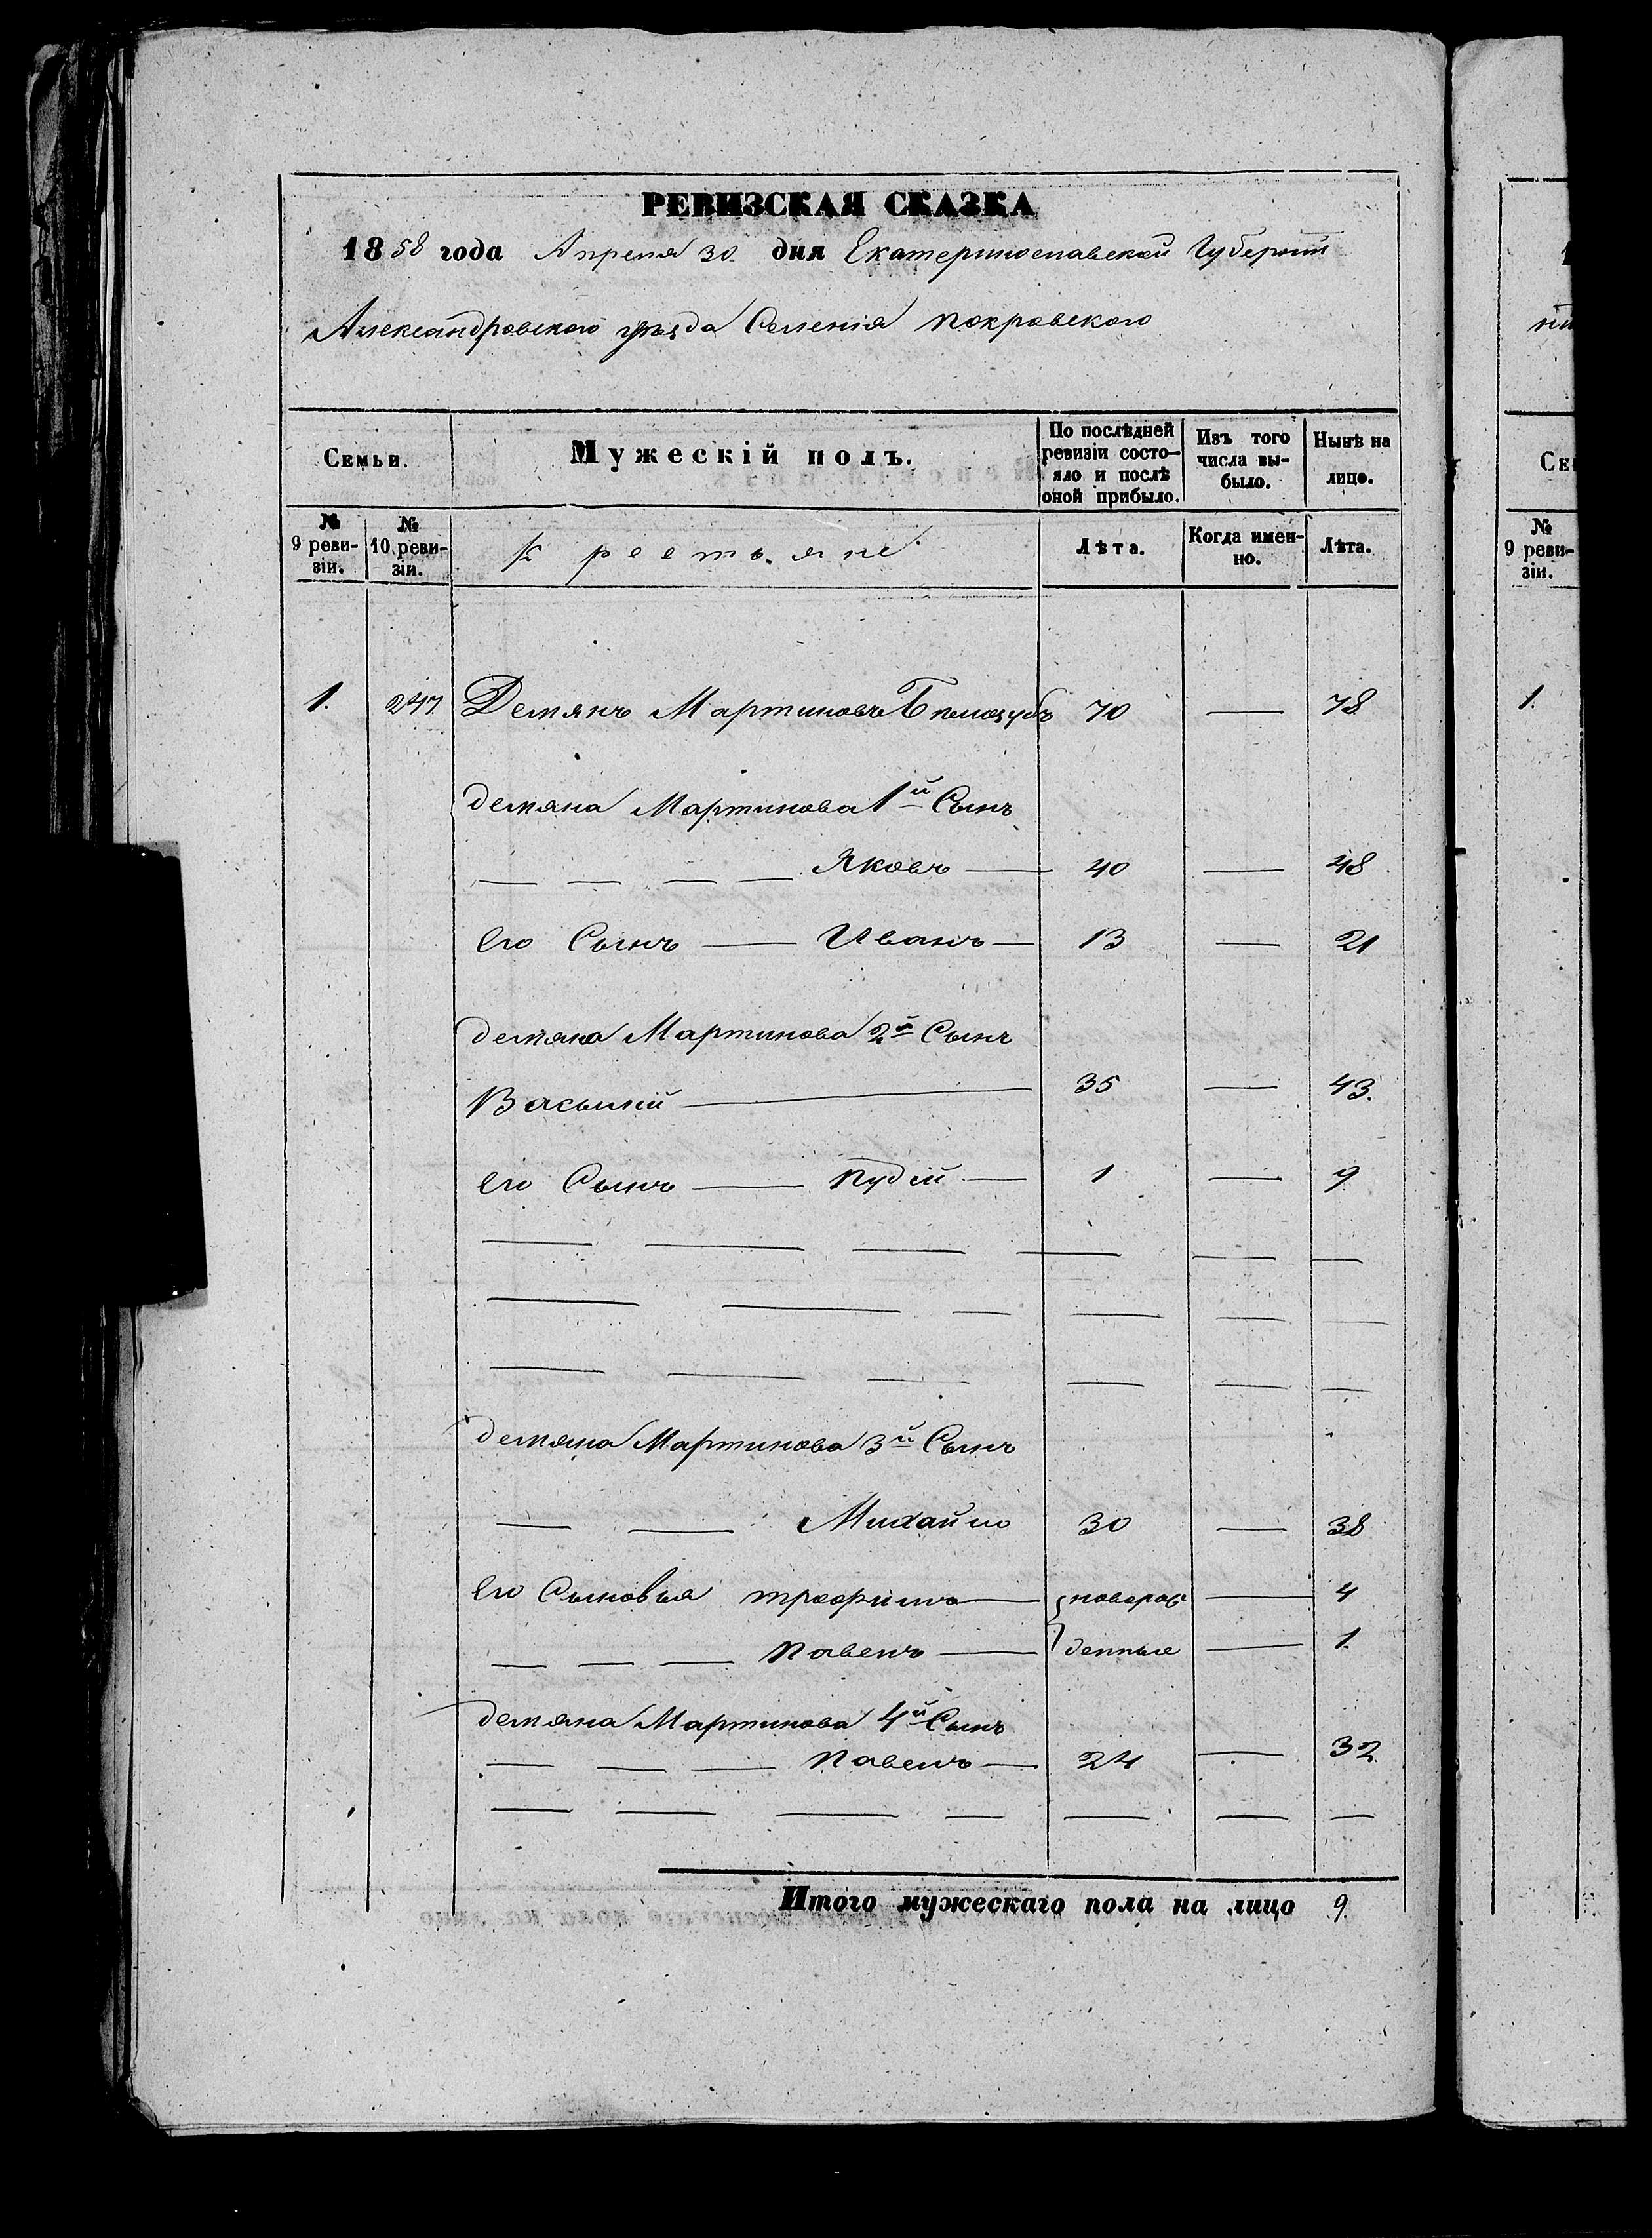 РЕВИЗСКАЯ СКАЗКА
1858 года Апреля 30 дня Екатеринославской Губернии
Александровского уѣзда Селенія покровского
Семьи.
Мужескій полъ.
По послѣдней ревизіи состо-яло и послѣ оной прибыло.
Изъ того числа вы-было.
Нынѣ на лицо.
№ 9 реви-зіи.
№ 10 реви-зіи.
Крестьяне
Лѣта.
Когда имен-но.
Лѣта.
1. 247. Демянъ Мартиновъ Бѣлозубъ 70 — 78
демяна Мартинова 1й Сынъ
— — — — Яковъ — 40 — 48
его Сынъ — Иванъ — 13 — 21
демяна Мартинова 2й Сынъ
Васылій — 35 — 43.
его Сынъ — Кудій — 1 — 9
демяна Мартинова 3й Сынъ
— — Михайло 30 — 38
его Сыновья трофимъ — новорож — 4
— — — павелъ — денные — 1.
демяна Мартинова 4й Сынъ
— — — павелъ — 24 — 32
Итого мужескаго пола на лицо 9.
№ 9 реви-зіи.
1.